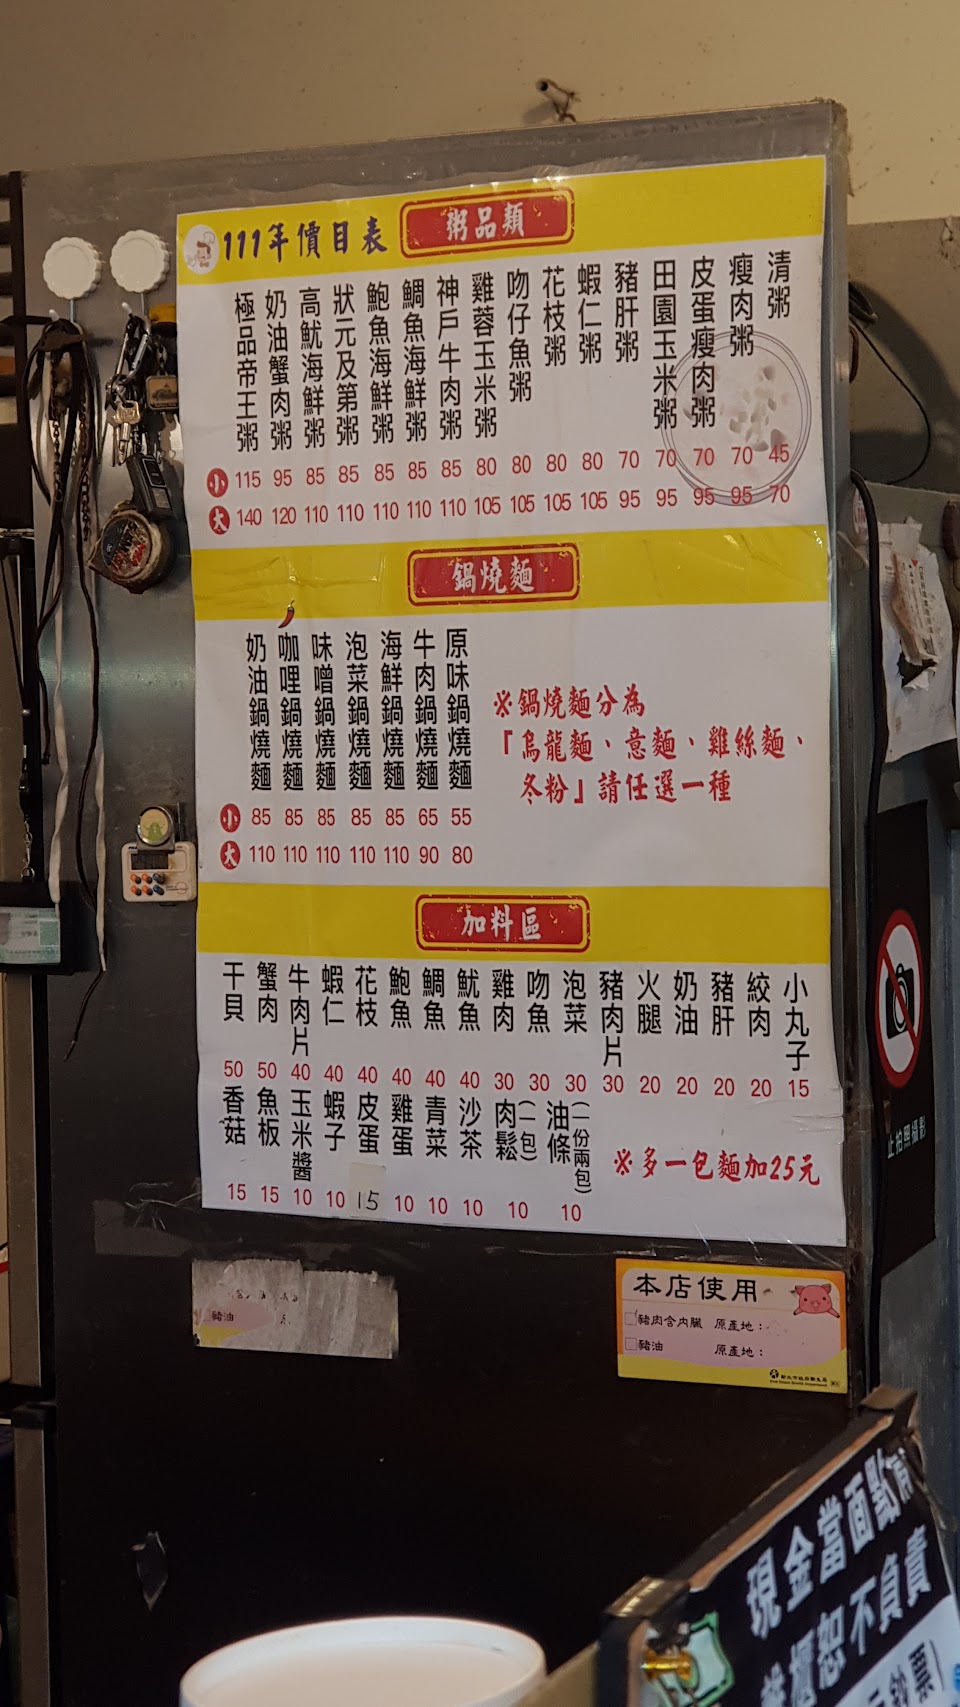 111年價目表
粥品類
清粥
瘦肉粥
皮蛋瘦肉粥
田園玉米粥
豬肝粥
蝦仁粥
花枝粥
吻仔魚粥
雞蓉玉米粥
神戶牛肉粥
鯛魚海鮮粥
鮑魚海鮮粥
狀元及第粥
高魷海鮮粥
奶油蟹肉粥
極品帝王粥
小 115 95 85 85 85 85 85 80 80 80 80 70 70 70 70 45
大 140 120 110 110 110 110 110 105 105 105 105 95 95 95 95 70
鍋燒麵
原味鍋燒麵
牛肉鍋燒麵
海鮮鍋燒麵
泡菜鍋燒麵
味噌鍋燒麵
咖哩鍋燒麵
奶油鍋燒麵
小 85 85 85 85 85 65 55
大 110 110 110 110 110 90 80
※鍋燒麵分為
「烏龍麵、意麵、雞絲麵、
冬粉」請任選一種
加料區
小丸子
絞肉
豬肝
奶油
火腿
豬肉片
泡菜
吻魚
雞肉
魷魚
鯛魚
鮑魚
花枝
蝦仁
牛肉片
蟹肉
干貝
50 50 40 40 40 40 40 40 30 30 30 30 20 20 20 20 15
油條(一份兩包)
肉鬆(一包)
沙茶
青菜
雞蛋
皮蛋
蝦子
玉米醬
魚板
香菇
15 15 10 10 15 10 10 10 10 10
※多一包麵加25元
豬油
本店使用
豬肉含內臟 原產地：
豬油 原產地：
新北市政府衛生局
止拍照攝影
現金當面點
櫃恕不負責
鈔票)